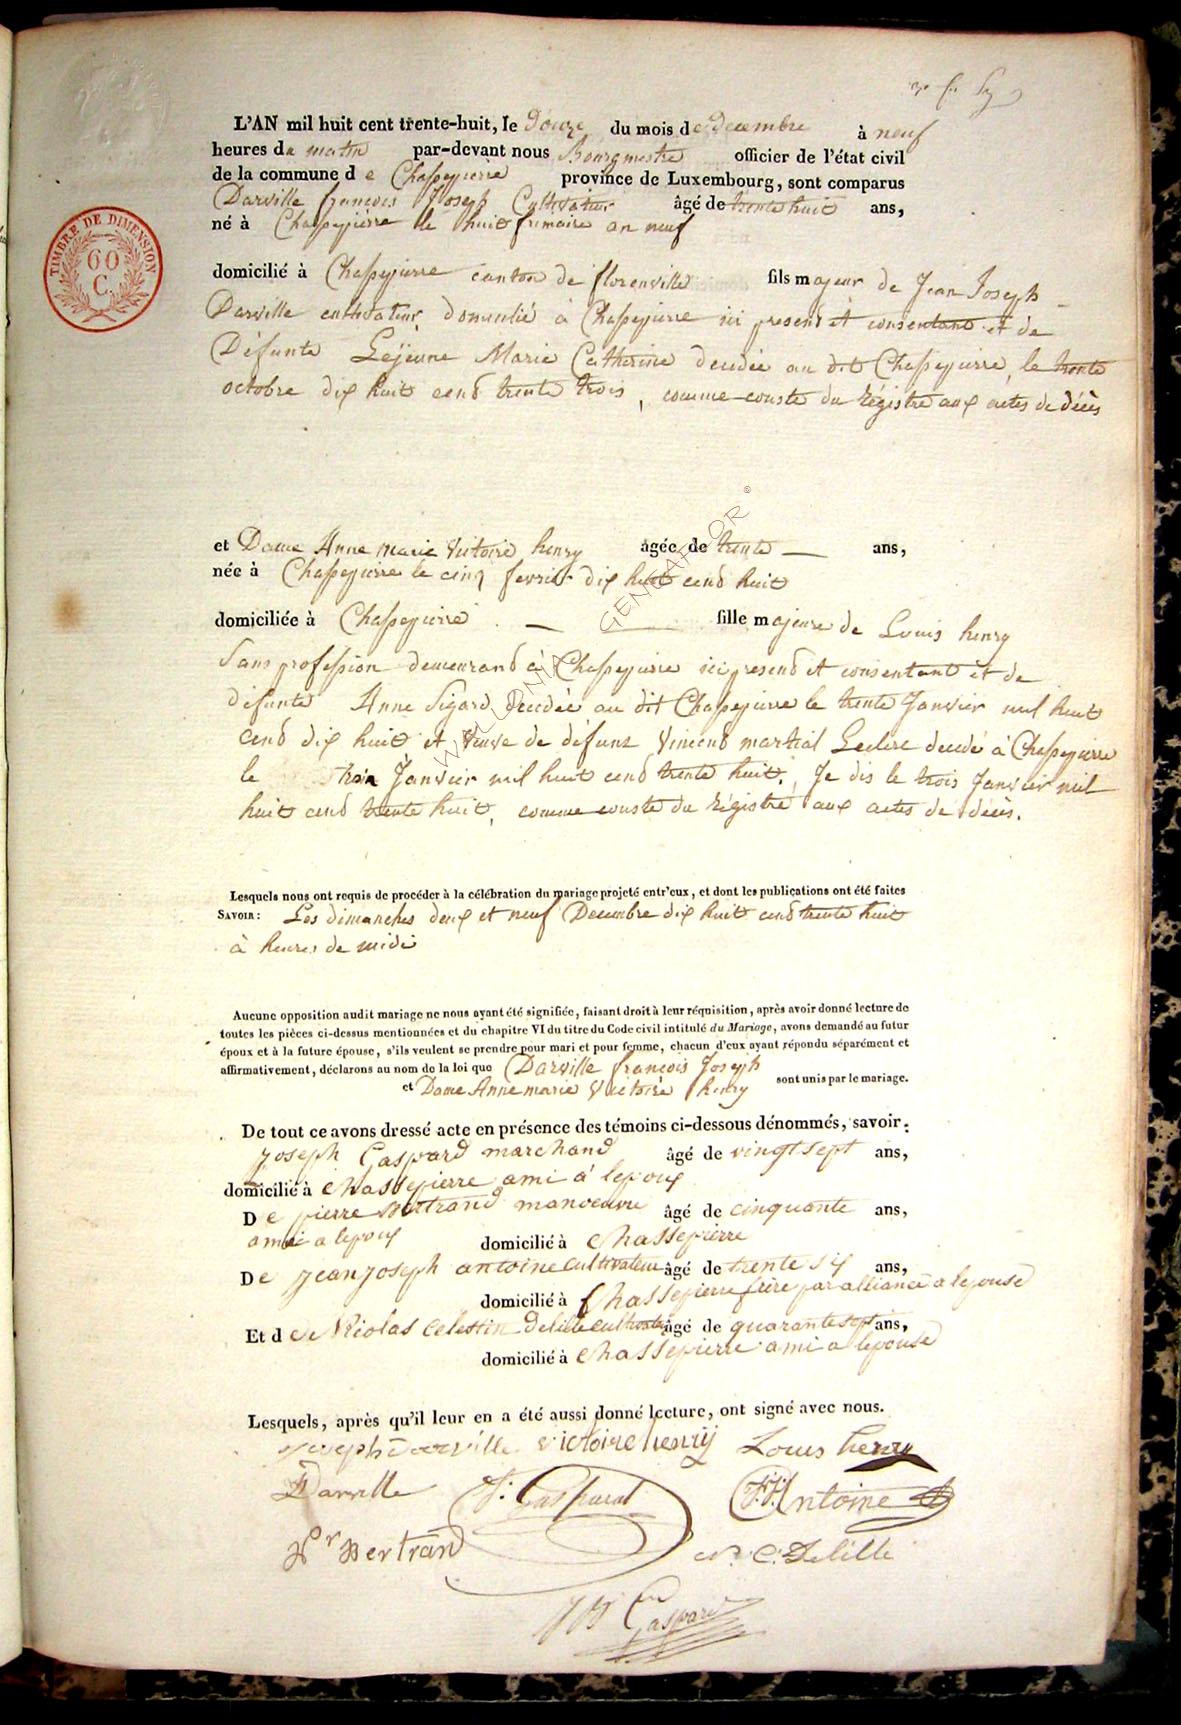 L'AN mil huit cent trente-huit, le Douze du mois de Decembre à neuf
heures du matin par-devant nous Bourgmestre officier de l'état civil
de la commune de Chassepierre province de Luxembourg, sont comparus
Darville françois Joseph Cultivateur âgé de trente huit ans,
né à Chassepierre le huit frimaire an neuf
TIMBRE DE DIMENSION
60
C.
domicilié à Chassepierre canton de florenville fils majeur de Jean Joseph
Darville cultivateur, domicilié à Chassepierre ici present et consentant et de
Défunte Lejeune Marie Catherine decedée au dit Chassepierre, le trente
octobre dix huit cend trente trois, comme conste du Régistre aux actes de décès
et Dame Anne marie Victoire henry agée de trente ans,
née à Chassepierre le cinq fevrier dix huit cend huit
domiciliée à Chassepierre fille majeure de Louis henry
Sans profession demeurand à Chassepierre ici presend et consentant et de
défunte Anne Sigard Decedée au dit Chassepierre le trente Janvier mil huit
cend dix huit, et veuve de défunt Vincend martial Leclerc decedé à Chassepierre
le trois Janvier mil huit cend trente huit. Je dis le trois Janvier mil
huit cend trente huit, comme conste du régistre aux actes de décès.
WWW.LUNIA GENEAF OR ©
Lesquels nous ont requis de procéder à la célébration du mariage projeté entr'eux, et dont les publications ont été faites
SAVOIR: Les dimanches deux et neuf Decembre dix huit cend trente huit
à heures de midi
Aucune opposition audit mariage ne nous ayant été signifiée, faisant droit à leur réquisition, après avoir donné lecture de
toutes les pièces ci-dessus mentionnées et du chapitre VI du titre du Code civil intitulé du Mariage, avons demandé au futur
époux et à la future épouse, s'ils veulent se prendre pour mari et pour femme, chacun d'eux ayant répondu séparément et
affirmativement, déclarons au nom de la loi que Darville françois Joseph
et Dame Anne marie Victoire henry sont unis par le mariage.
De tout ce avons dressé acte en présence des témoins ci-dessous dénommés, savoir:
Joseph Gaspard marchand âgé de vingt sept ans,
domicilié à chassepierre ami à lepoux
De pierre Bertrand manoeuvre âgé de cinquante ans,
ami a lepoux domicilié à chassepierre
De jean joseph antoine cultivateur âgé de trente six ans,
domicilié à Chassepierre frère par alliance a lepouse
Et de Nicolas celestin Delille cultivateur âgé de quarante sept ans,
domicilié à chassepierre ami a lepouse
Lesquels, après qu'il leur en a été aussi donné lecture, ont signé avec nous.
joseph darville victoire henrÿ Louis henry
Darville J. Gaspard J.J. Antoine
Pr Bertrand N. C. Delille
Gaspard